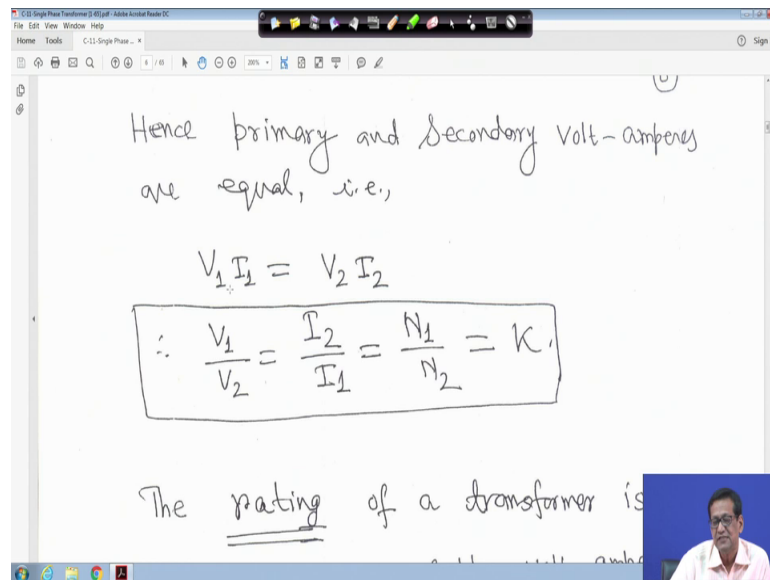 C-11-Single Phase Transformer [1-65].pdf - Adobe Acrobat Reader DC
File Edit View Window Help
Home Tools C-11-Single Phase ... × Sign
6 / 65 200%
Hence primary and Secondary volt-amperes
are equal, i.e.,
V₁ I₁ = V₂ I₂
∴ V₁/V₂ = I₂/I₁ = N₁/N₂ = K.
The rating of a transformer is